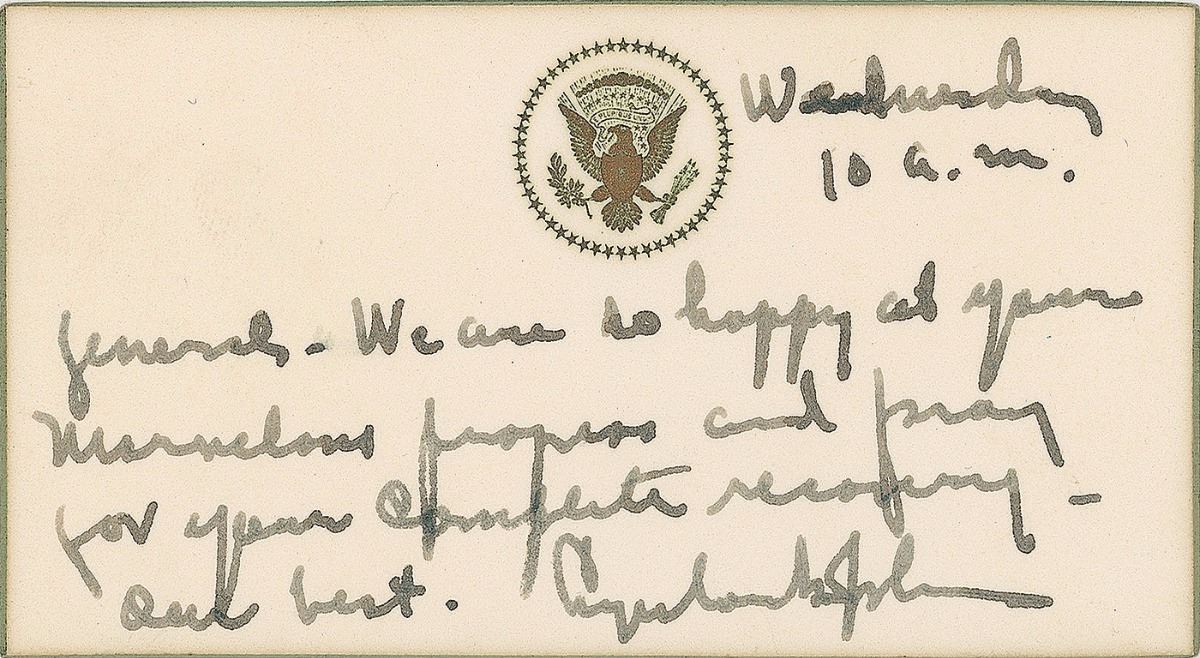 E PLURIBUS UNUM
Wednesday
10 a.m.
General - We are so happy at your
Marvelous progress and pray
for your Complete recovery -
Our best. Lyndon B Johnson